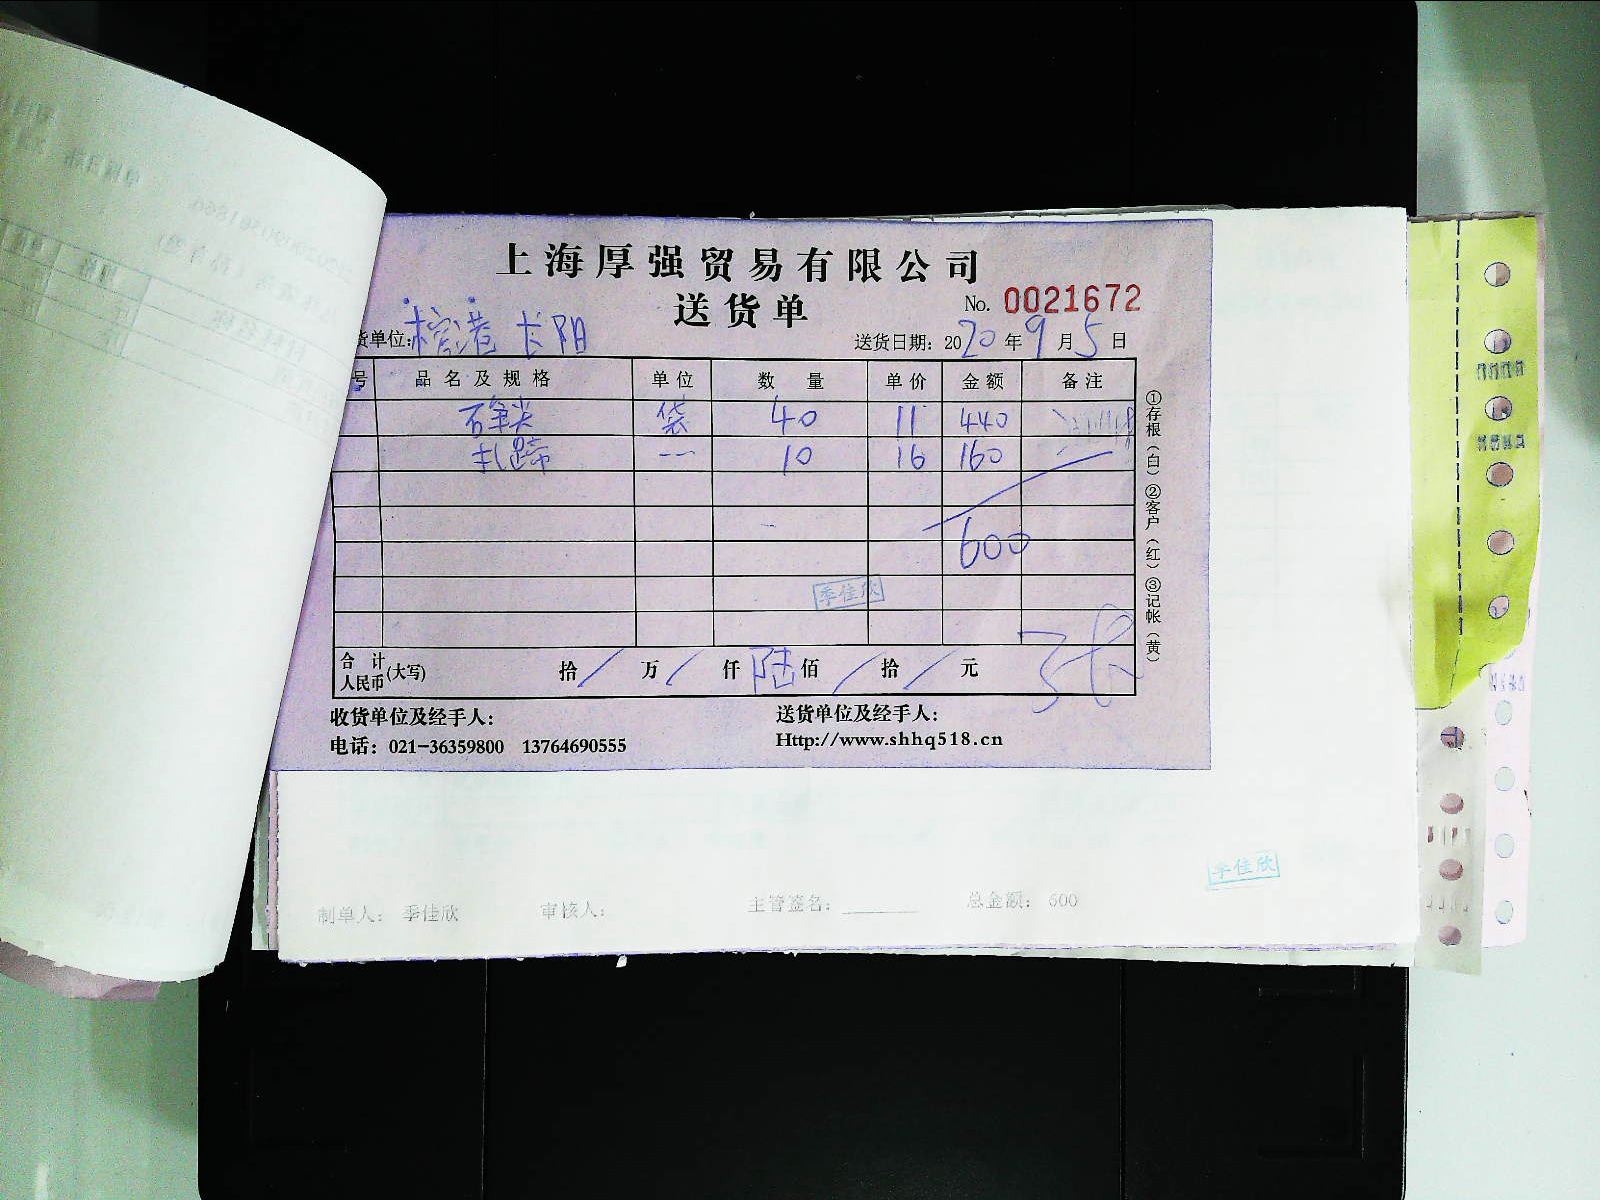 上海厚强贸易有限公司
送货单
No. 0021672
货单位: 长阳
送货日期: 2020年9月5日
号 品名及规格 单位 数量 单价 金额 备注
袋 40 11 440
10 16 160
600
季佳欣
合计人民币(大写) 拾/万/仟陆佰/拾/元
①存根(白)②客户(红)③记帐(黄)
收货单位及经手人:
送货单位及经手人:
电话: 021-36359800 13764690555
Http://www.shhq518.cn
季佳欣
制单人: 季佳欣 审核人: 主管签名: ______ 总金额: 600